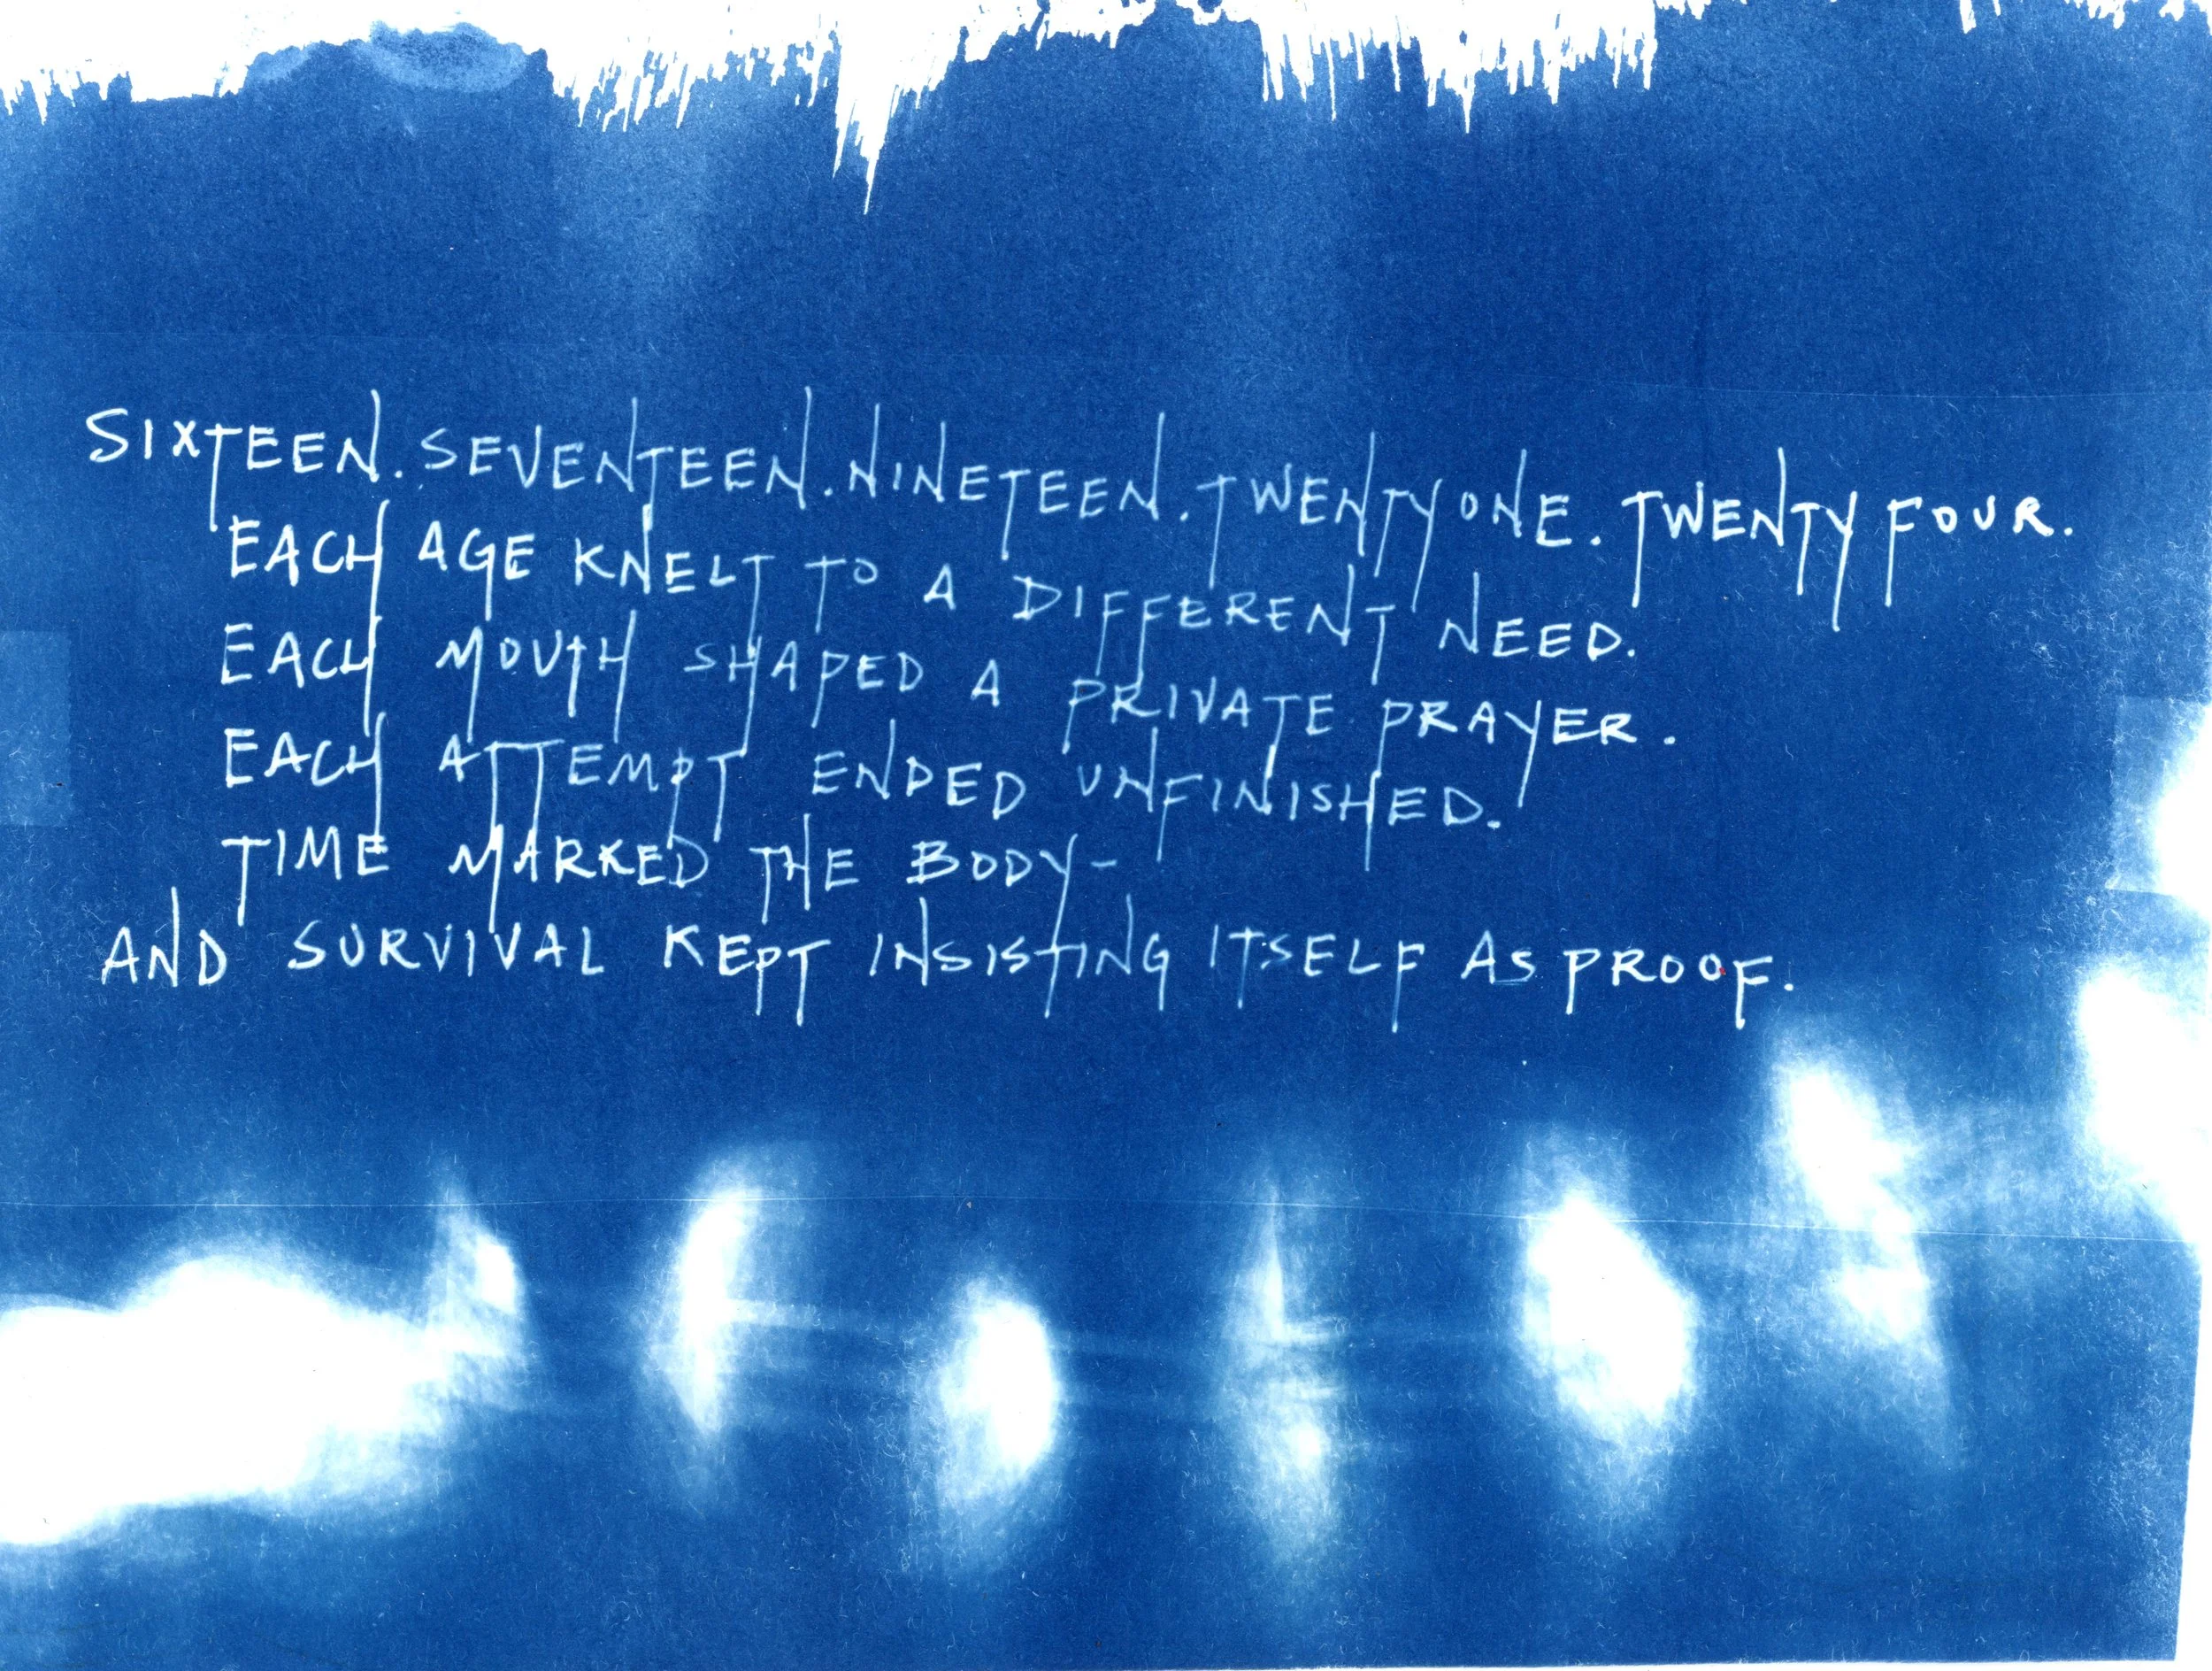 SIXTEEN. SEVENTEEN. NINETEEN. TWENTY ONE. TWENTY FOUR.
EACH AGE KNELT TO A DIFFERENT NEED.
EACH MOUTH SHAPED A PRIVATE PRAYER.
EACH ATTEMPT ENDED UNFINISHED.
TIME MARKED THE BODY-
AND SURVIVAL KEPT INSISTING ITSELF AS PROOF.